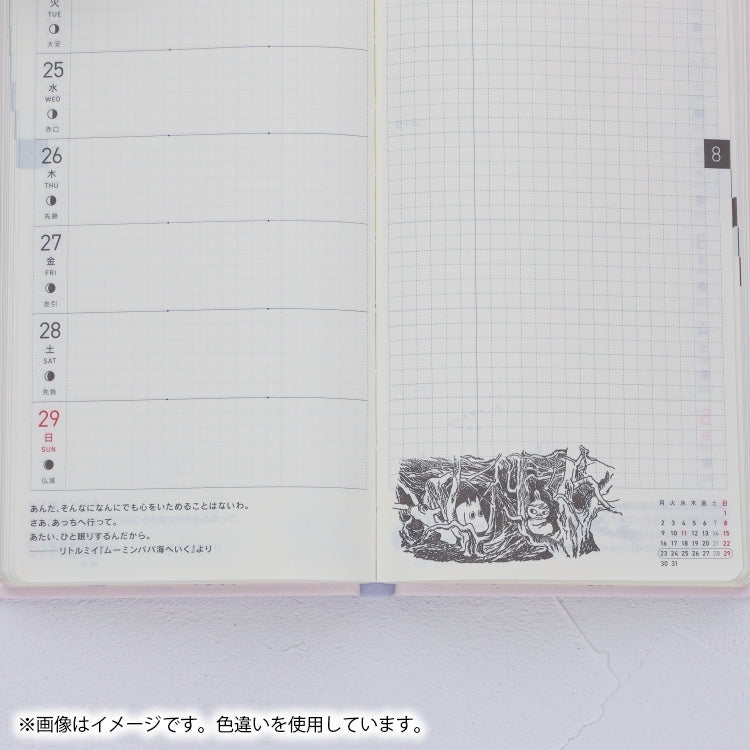 火
TUE
大安
25
水
WED
赤口
26
木
THU
先勝
27
金
FRI
友引
28
土
SAT
先負
29
日
SUN
仏滅
あんた、そんなになんにでも心をいためることはないわ。
さあ、あっちへ行って。
あたい、ひと眠りするんだから。
———リトルミイ『ムーミンパパ海へいく』より
8
月 火 水 木 金 土 日
1
2 3 4 5 6 7 8
9 10 11 12 13 14 15
16 17 18 19 20 21 22
23 24 25 26 27 28 29
30 31
※画像はイメージです。色違いを使用しています。